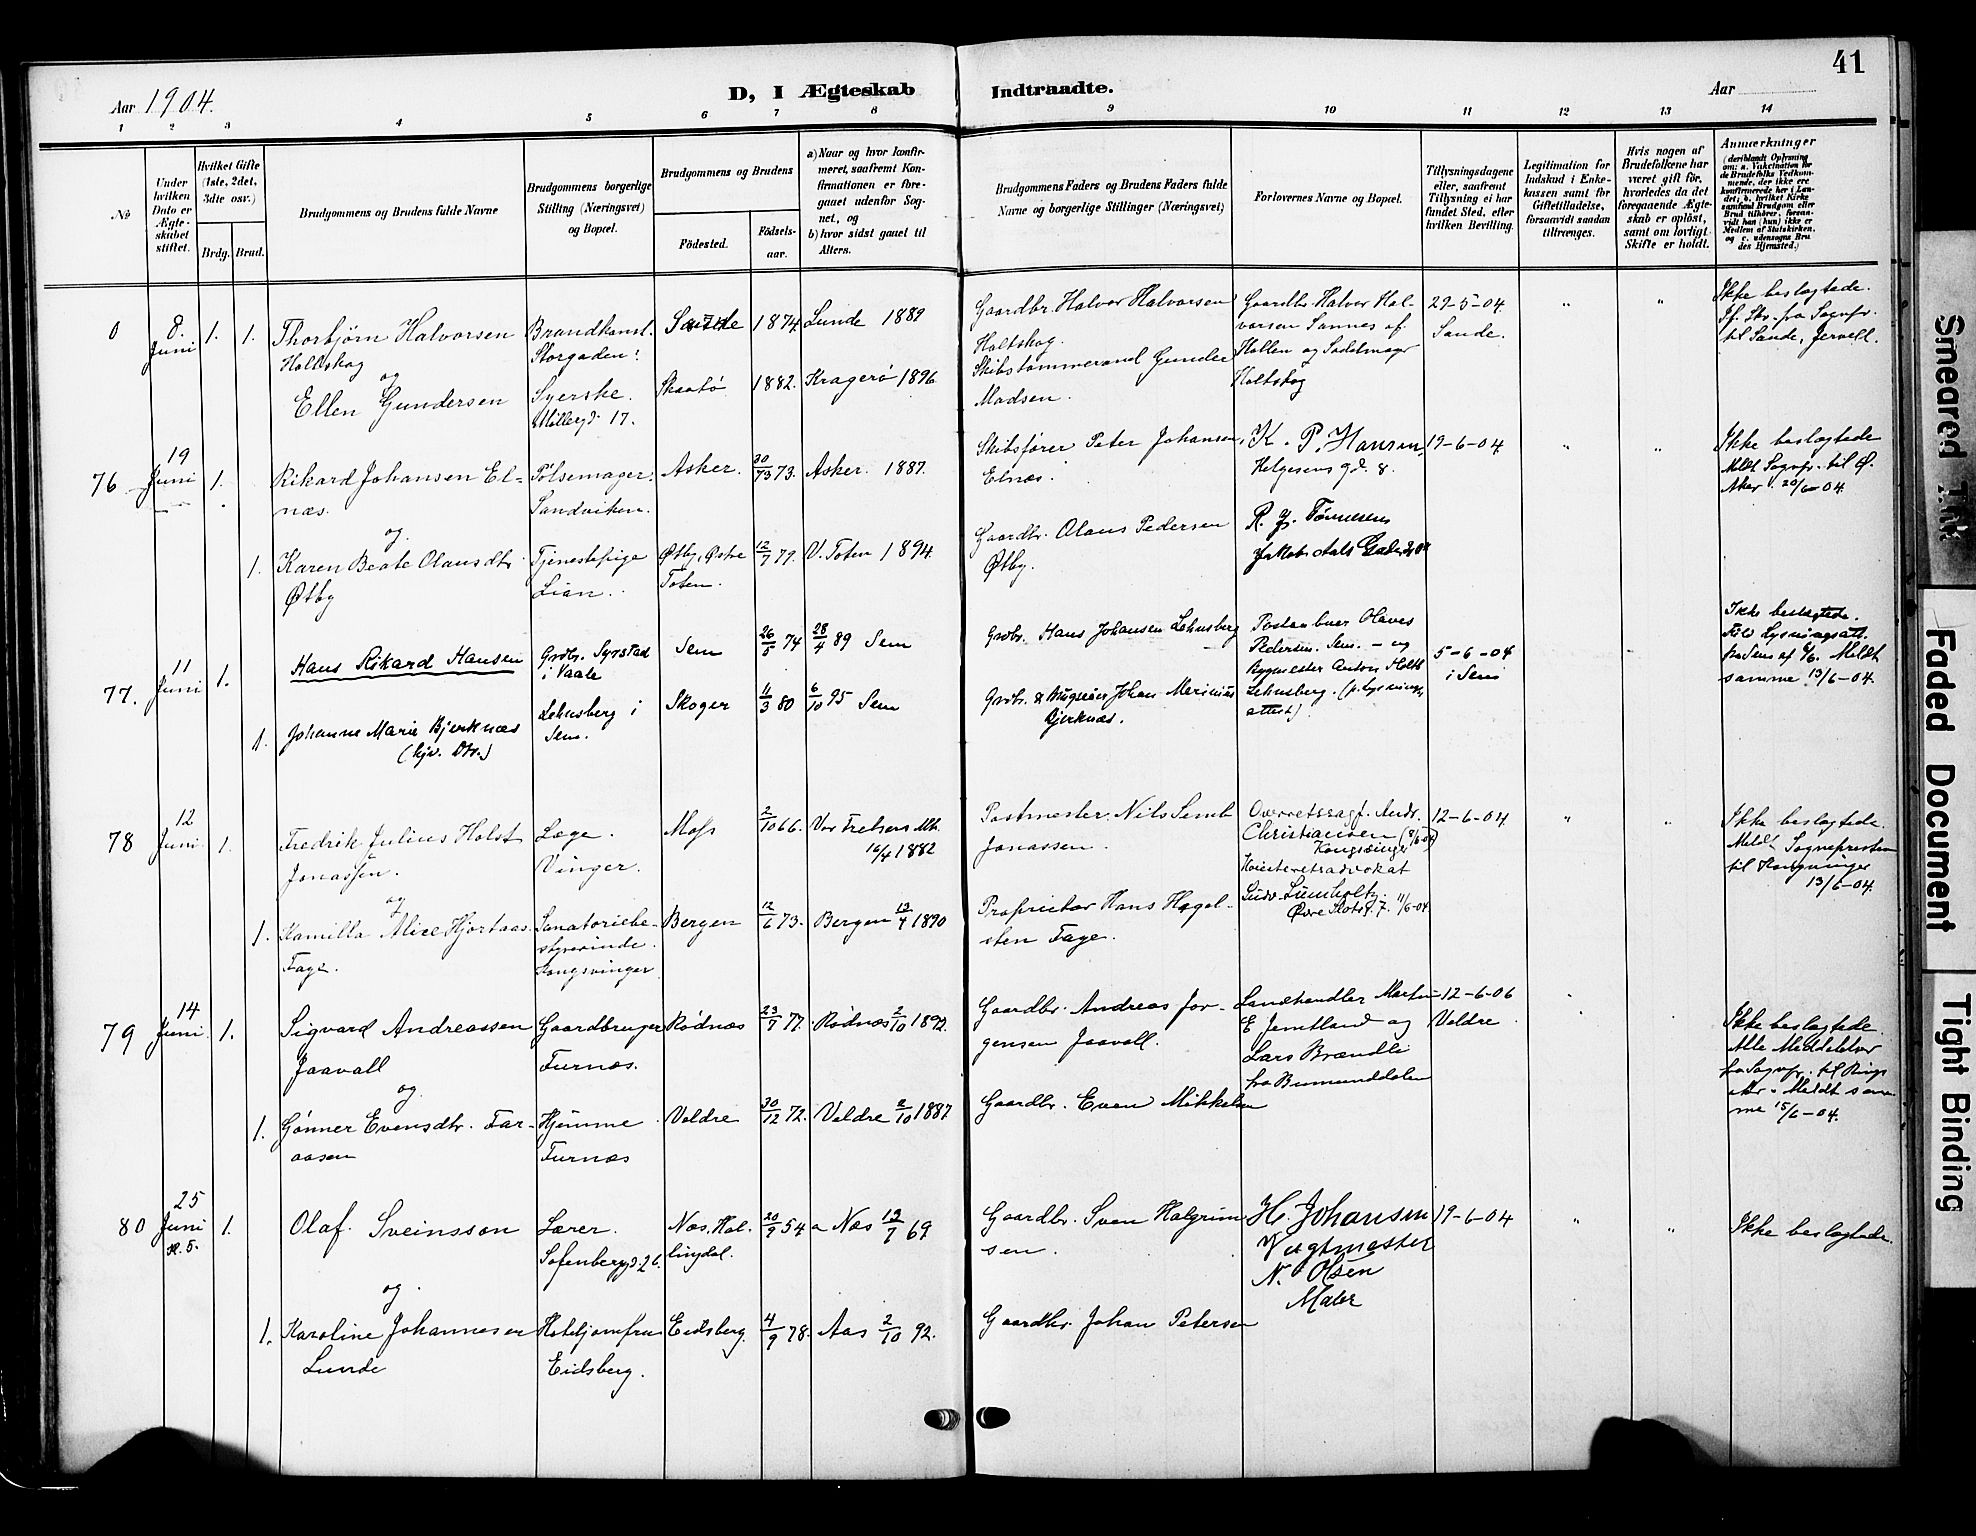 41
Aar 1904.
D, I Ægteskab Indtraadte.
Aar
1 2 3 4 5 6 7 8 9 10 11 12 13 14
No
Under hvilken Dato er Ægteskabet stiftet.
Hvilket Gifte (1ste, 2det, 3dte osv.)
Brdg. Brud.
Brudgommens og Brudens fulde Navne
Brudgommens borgerlige Stilling (Næringsvei) og Bopæl.
Brudgommens og Brudens
Fødested.
Fødselsaar.
a) Naar og hvor konfirmeret, saafremt Konfirmationen er foregaaet udenfor Sognet, og
b) hvor sidst gaaet til Alters.
Brudgommens Faders og Brudens Faders fulde Navne og borgerlige Stillinger (Næringsvei)
Forlovernes Navne og Bopæl.
Tillysningsdagene eller, saafremt Tillysning ei har fundet Sted, efter hvilken Bevilling.
Legitimation for Indskud i Enkekassen samt for Giftetilladelse, forsaavidt saadan tiltrænges.
Hvis nogen af Brudefolkene har været gift før, hvorledes da det foregaaende Ægteskab er opløst, samt om lovligt Skifte er holdt.
Anmærkninger
0 8. Juni 1. 1.
Thorbjørn Halvorsen
Holtskog
og
Ellen Gundersen
Brandkonst.
Storgaden
Syerske.
Møllergd. 17.
1874 Lunde 1889
Skaatø 1882. Kragerø 1896.
Gaardbr. Halvor Halvorsen
Holtskog.
Skibstømmermand Gunder
Madsen.
Gaardbr. Halvor Halvorsen Sannes af
Hollen og Sadelmager
Holtskog
29-5-04
Sande.
Ikke beslægtede.
76 19 Juni 1.
Rikard Johansen Elnæs.
og
1. Karen Beate Olausdtr.
Østby
Pølsemager.
Sandviken.
Tjenestepige
Lian.
Asker. 30/73 73. Asker. 1887.
Østby, Østre
Toten. 12/7 79. V. Toten 1894.
Skibsfører Peter Johansen
Elnæs.
Gaardbr. Olaus Pedersen
Østby.
K. P. Hansen
Helgesens gd. 8.
19-6-04
Ikke beslægtede
Meldt Sognepr. til Ø.
Aker. 20/6-04.
77. 11 Juni 1.
Hans Rikard Hansen
1. Johanne Marie Bjerknæs
Grdbr. Syrstad
i Vaale
Lehnsberg i
Sem.
Sem 26/5 74 28/4 89 Sem
Skoger 11/3 80 6/10 95 Sem
Grdbr. Hans Johansen Lehnsberg
Grdbr. & Johan Marinius
Bjerknæs.
Olaves
Pedersen. Sem. - og
Bygmester Anton Holt
Lehnsberg. (p. Lysningsattest).
5-6-04
i Sem
Ikke beslægtede.
Meldt
samme 13/6-04.
78 12 Juni 1.
Fredrik Julius Holst
Jonassen.
og
1. Kamilla Alice Hjortaas
Fage.
Læge.
Vinger.
Sanatoriebestyrerinde.
Kongsvinger
Moss 2/10 66. Vor Frelsers Mh.
16/4 1882
Bergen 12/6 73. Bergen 13/4 1890
Postmester Nils Semb
Jonassen.
Proprietær Hans Hagelsten Fage.
Overretssagf. Andr.
Christiansen
Kongsvinger
Høiesteretsadvokat
Ludv. Lumholtz.
Øvre Slotsg. 7. 11/6-04.
12-6-04
Ikke beslægtede.
Meldt Sognepresten
til Kongsvinger
13/6-04.
79 14 Juni. 1.
Sigvard Andreassen
Jaavall
og
1. Gønner Evensdtr. Faraasen
Gaardbruger
Furnæs.
Hjemme
Furnæs
Rødnæs 23/7 77. Rødnæs 2/10 1892.
Veldre 30/12 72. Veldre 2/10 1887
Gaardbr. Andreas Jorgensen Jaavall.
Gaardbr. Even Mikkelsen
Landhandler Martin
E Jemtland og
Lars Brændli
fra Brumunddalen
12-6-06
Veldre
Ikke beslægtede.
Meldt samme 15/6-04.
80 25 Juni kl. 5. 1.
Olaf Sveinsson
og
1. Karoline Johannesen
Lunde
Lærer.
Sofenberggd. 26.
Hoteljomfru
Eidsberg.
Næs, Hallingdal. 20/9 54 a Næs 12/7 69
Eidsberg. 4/9 78. Aas 2/10 92.
Gaardbr. Sven Halgrimsen.
Gaardbr. Johan Petersen
H. Johansen
Vagtmester
N. Olsen
Maler
19-6-04
Ikke beslægtede.
Smeared Ink
Faded Document
Tight Binding